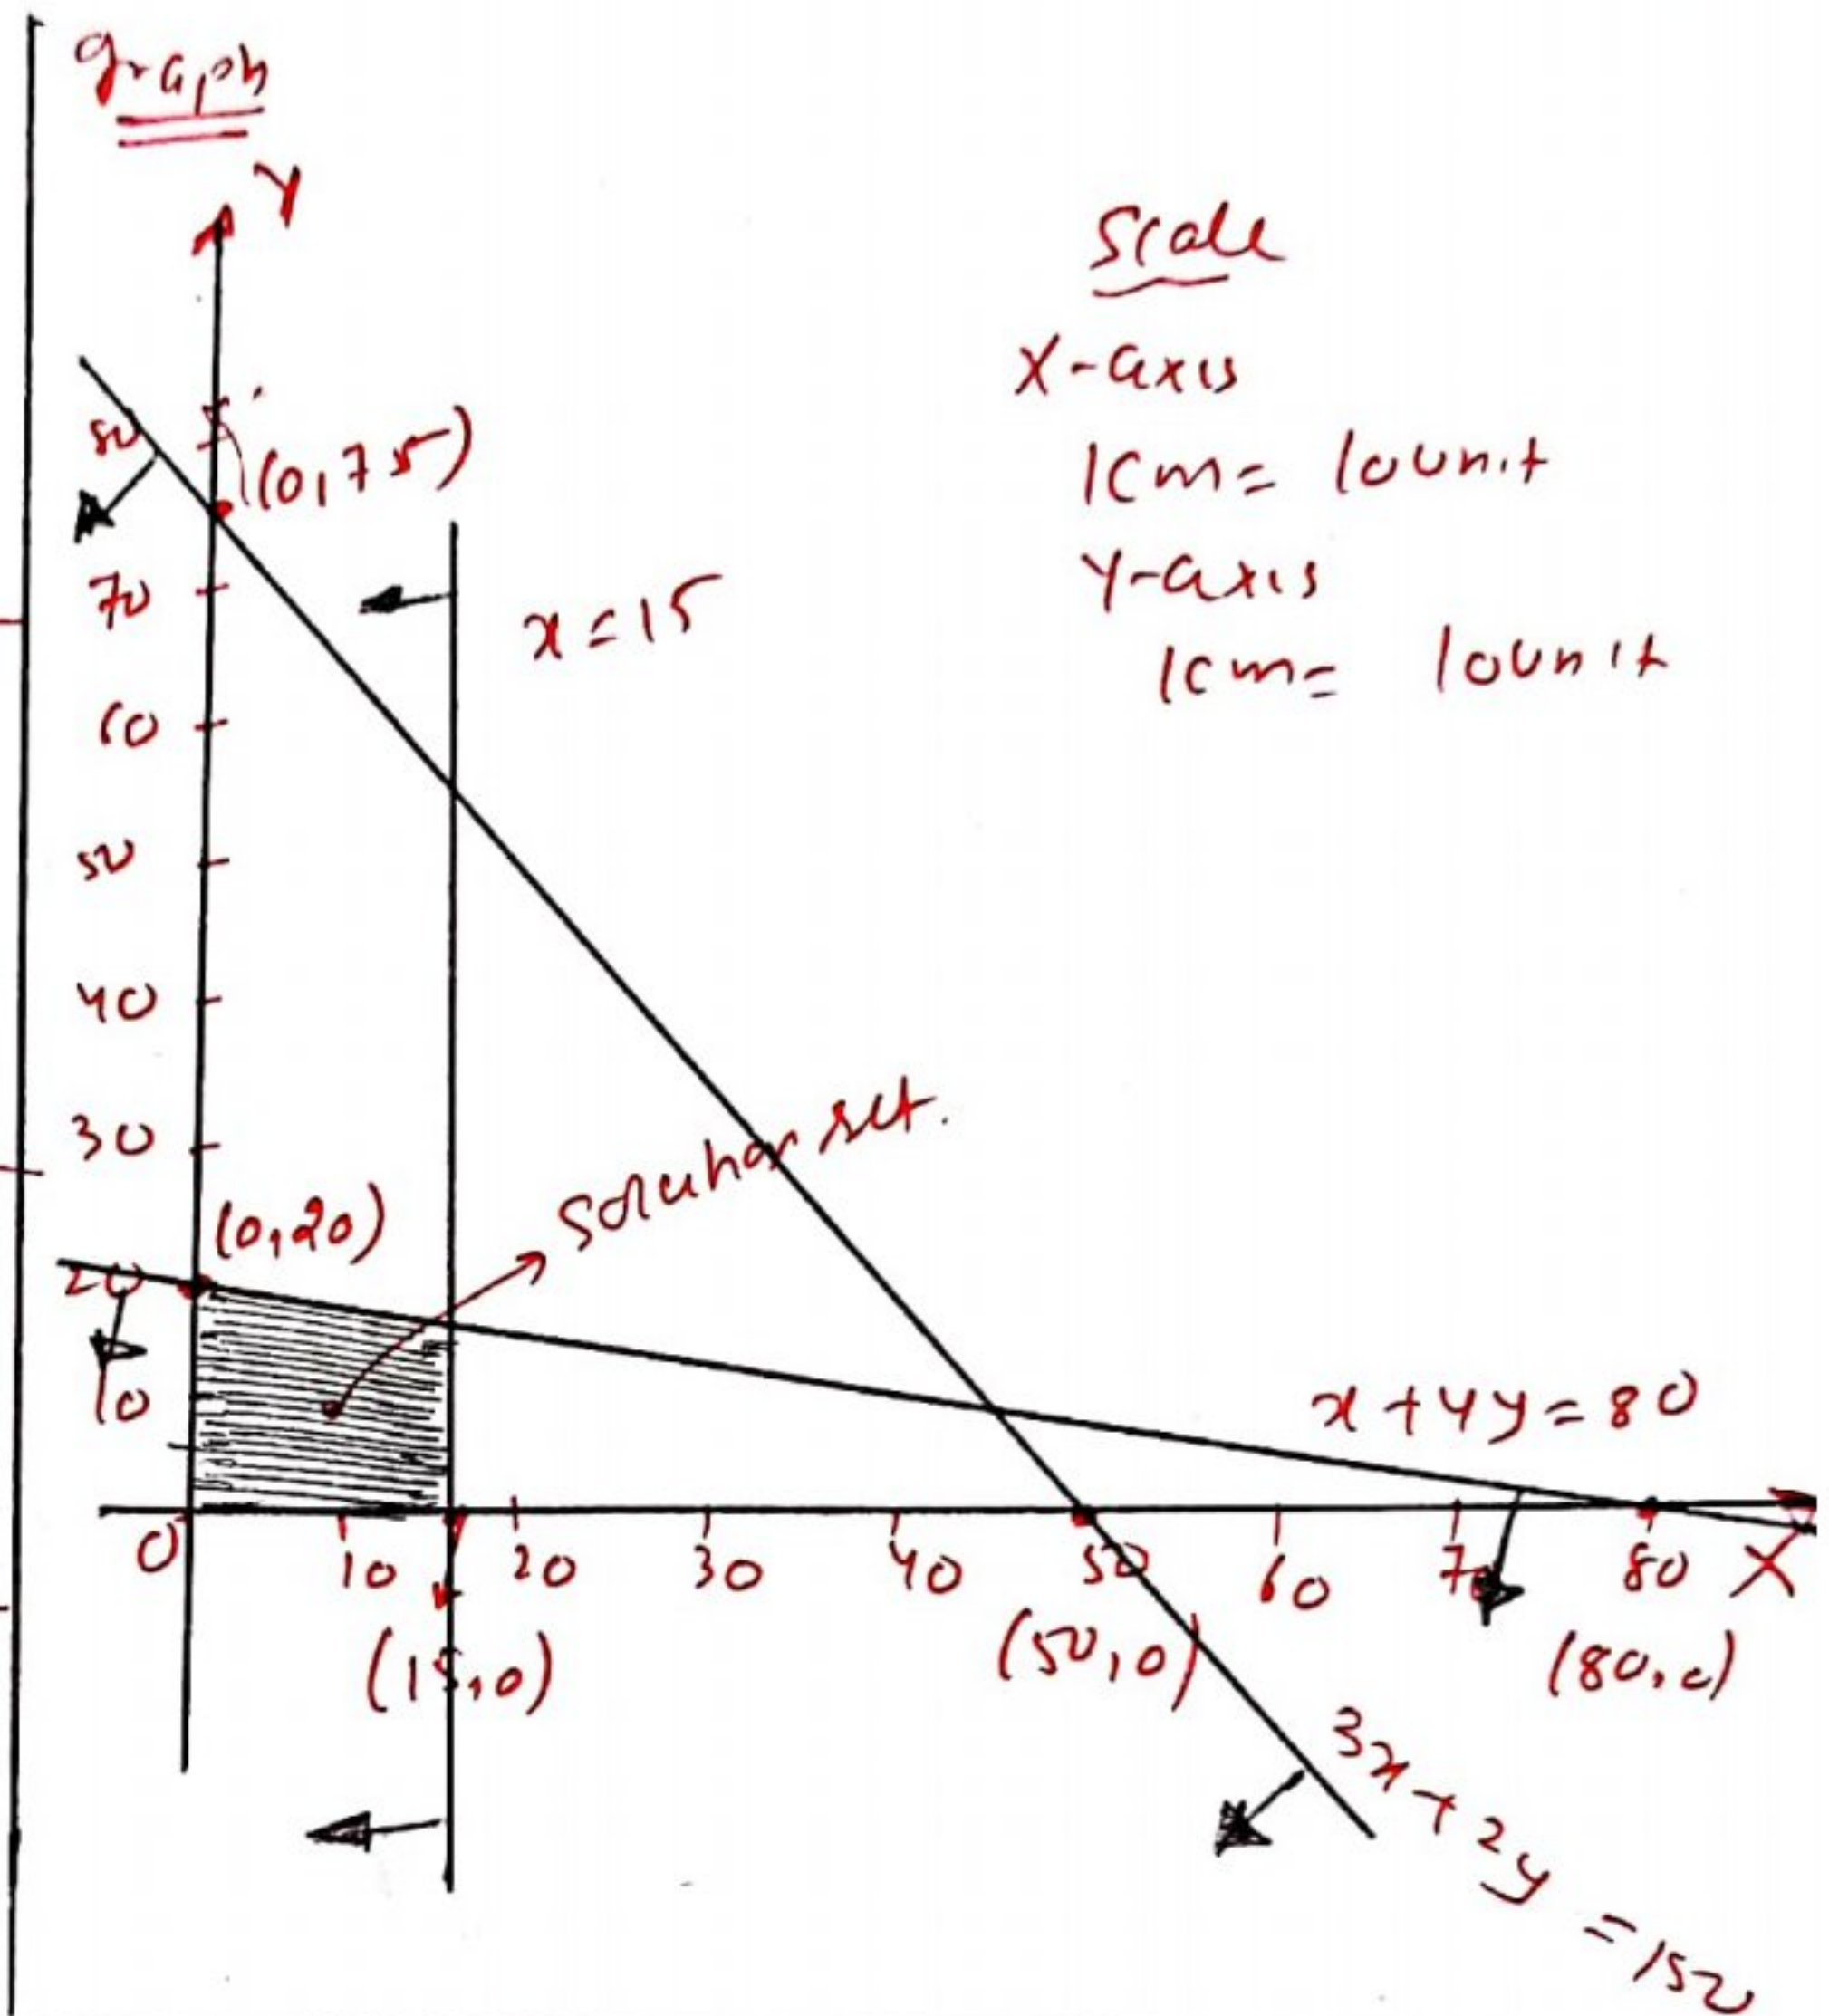 graph
Y
Scale
X-axis
1cm= 10unit
Y-axis
1cm= 10unit
80
(0,75)
70
x=15
60
50
40
30
solution set.
(0,20)
20
10
x+4y=80
0
10
20
30
40
50
60
70
80
X
(15,0)
(50,0)
(80,0)
3x+2y=150